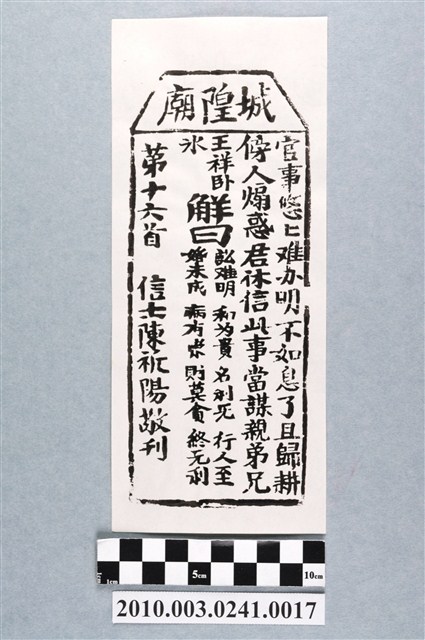 城隍廟
官事悠〻难办明不如息了且歸耕
傍人煽惑君休信此事當謀親弟兄
王祥卧
氷
解曰
訟难明 和为貴 名利死 行人至
婚未成 病有祟 財莫貪 終无利
第十六首 信士陳祈陽敬刊
1cm 5cm 10cm
2010.003.0241.0017